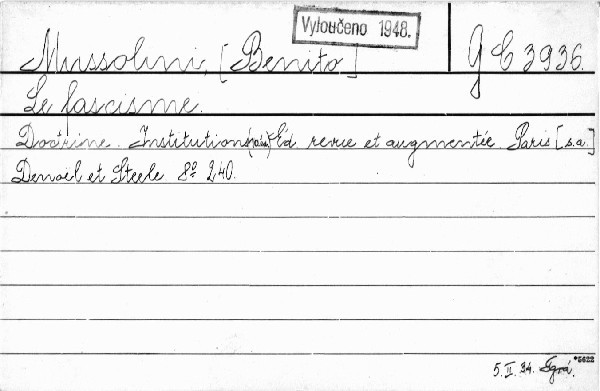 Vyloučeno 1948.
Mussolini, [Benito] G C 3936.
Le fascisme.
Doctrine. Institutions. Éd. revue et augmentée. Paris [s.a.]
Denoël et Steele 8° 240.
*5622
5.II.34.